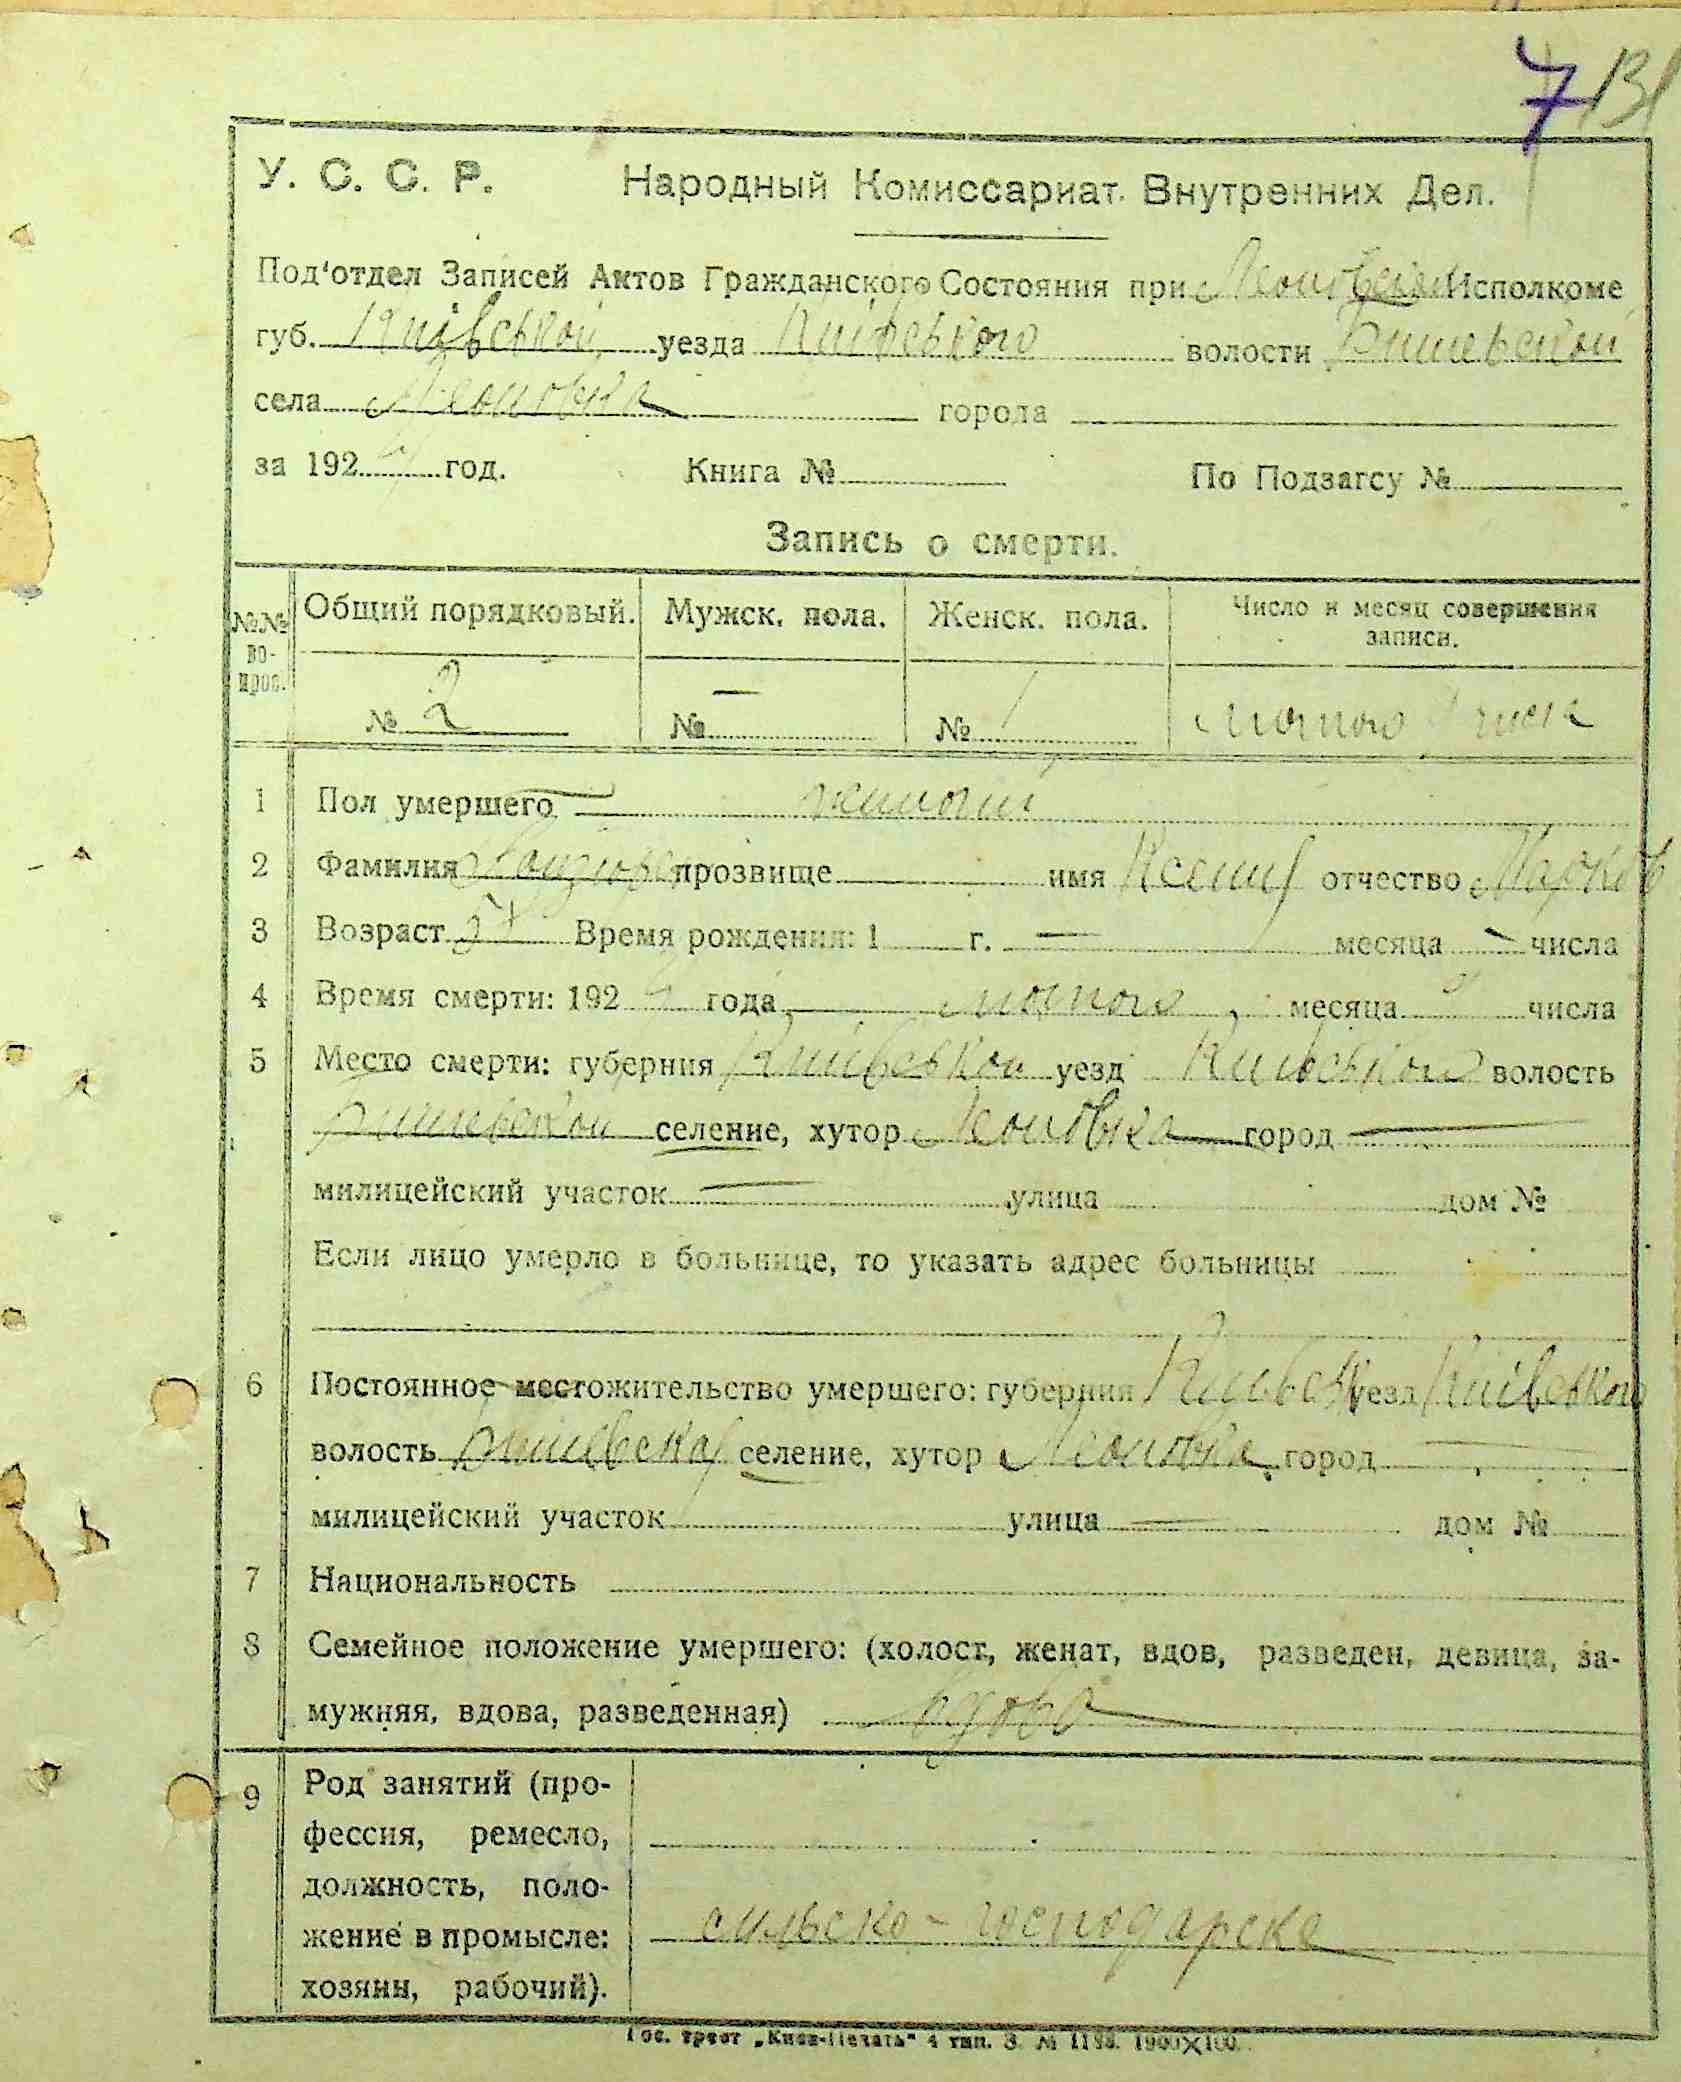 7 131
У. С. С. Р. Народный Комиссариат Внутренних Дел.
Под'отдел Записей Актов Гражданского Состояния при Леоновском Исполкоме
губ. Київської уезда Київського волости Бишевской
села Леоновка города
за 192 год. Книга № По Подзагсу №
Запись о смерти.
№№ во- прос. Общий порядковый. Мужск. пола. Женск. пола. Число и месяц совершения записи.
№ 2 № — № 1 лютого числа
1 Пол умершего женский
2 Фамилия прозвище имя Ксения отчество Марков
3 Возраст Время рождения: 1 г. — месяца — числа
4 Время смерти: 192 года лютого месяца числа
5 Место смерти: губерния Київской уезд Київського волость
Бишевской селение, хутор Леоновка город —
милицейский участок — улица дом №
Если лицо умерло в больнице, то указать адрес больницы
6 Постоянное местожительство умершего: губерния уезд Київського
волость Бишевская селение, хутор Леоновка город —
милицейский участок улица — дом №
7 Национальность
8 Семейное положение умершего: (холост, женат, вдов, разведен, девица, за-
мужняя, вдова, разведенная) вдова
9 Род занятий (про-
фессия, ремесло,
должность, поло-
жение в промысле:
хозяин, рабочий).
сильско-господарске
Гос. трест „Киев-Печать" 4 тип. З. № 1188. 1900×100.